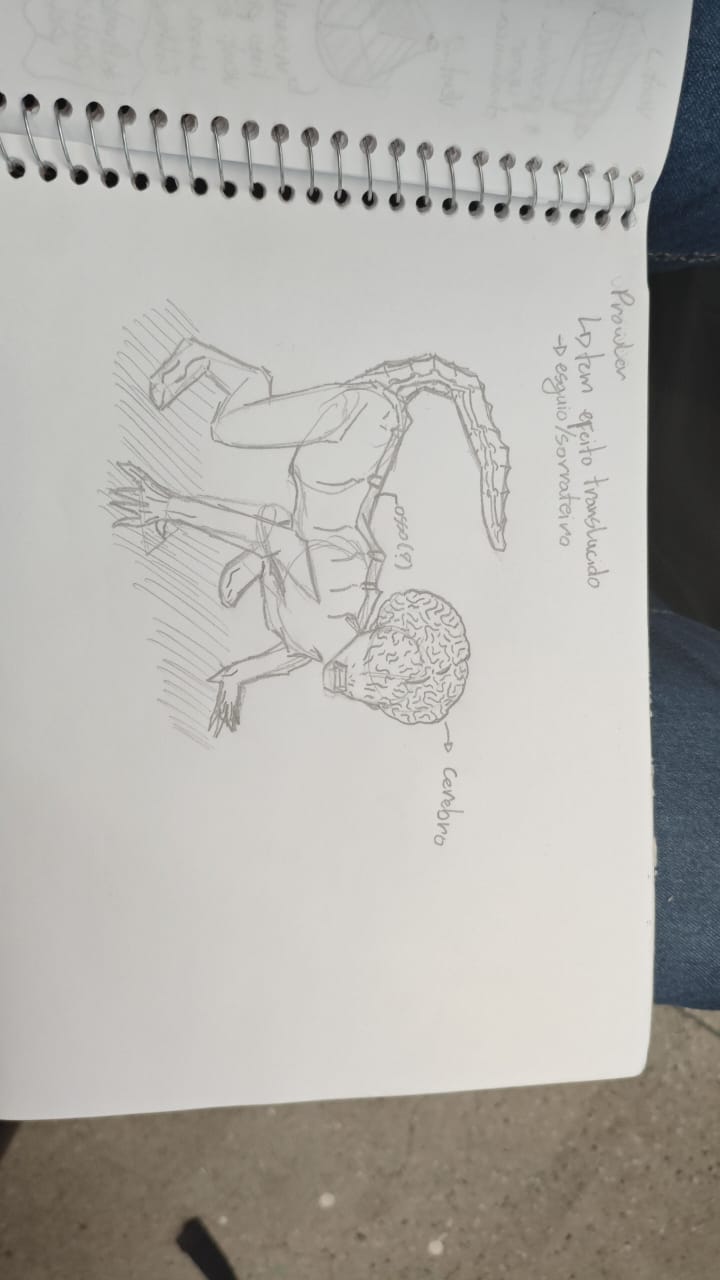 Prowler
↳ tem efeito translucido
→ esguio/sorrateiro
osso(?)
→ cerebro